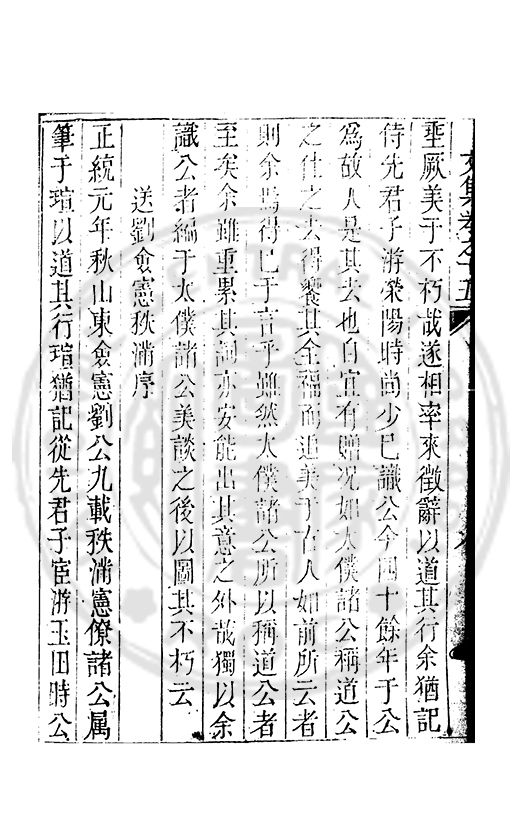 文集卷之十五
垩厥美于不朽哉遂相率來徵辭以道其行余猶記
侍先君子游滎陽時尚少已識公今四十餘年于公
爲故人是其去也自宜有贈况如太僕諸公稱道公
之仕之去得饗其全福而追美于古人如前所云者
則余焉得已于言乎雖然太僕諸公所以稱道公者
至矣余雖重累其詞亦安能出其意之外哉獨以余
識公者編于太僕諸公美談之後以圖其不朽云
送劉僉憲秩滿序
正統元年秋山東僉憲劉公九載秩滿憲僚諸公属
筆于瑄以道其行瑄猶記從先君子宦游玉田時公